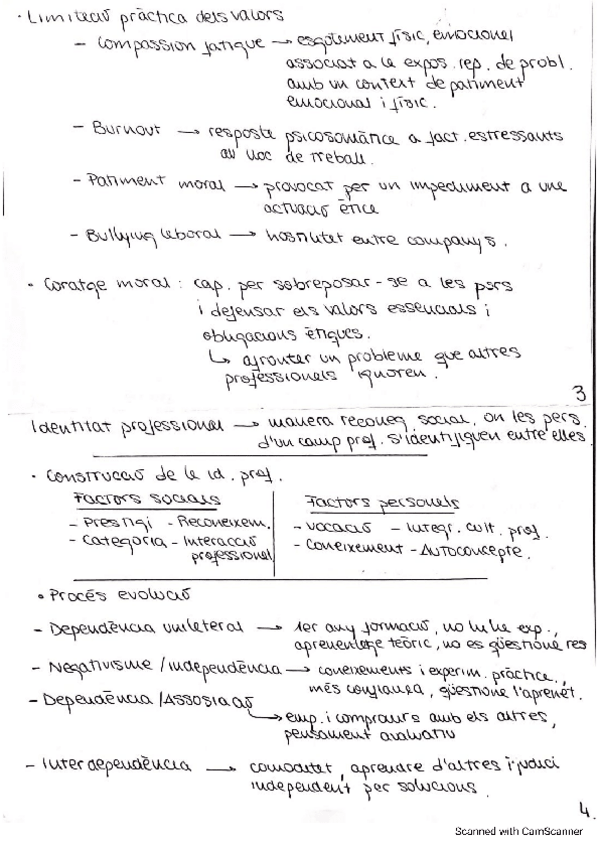 · Limitació pràctica dels valors
- Compassion fatigue → esgotament físic, emocional
associat a la expos. rep. de probl.
amb un context de patiment
emocional i físic.
- Burnout → resposta psicosomànica a fact. estressants
au lloc de treball.
- Patiment moral → provocat per un impediment a una
actuació ètica
- Bullying laboral → hostilitat entre companys.
· Coratge moral : cap. per sobreposar-se a les pors
i defensar els valors essencials i
obligacions ètiques.
↳ afrontar un problema que altres
professionals ignoren.
3
Identitat professional → manera reconeg. social, on les pers.
d'un camp prof. s'identifiquen entre elles
· Construcció de la id. prof.
Factors socials
- Prestigi - Reconeixem.
- Categoria - Interacció
professional
Factors personals
- vocació - Integr. cult. prof.
- Coneixement - Autoconcepte.
· Procés evolució
- Dependència unilateral → 1er any formació, no hi ha exp.,
aprenentatge teòric, no es qüestiona res
- Negativisme / independència → coneixements i experim. pràctica,
més confiança, qüestiona l'aprenèt.
- Dependència / Assosiació
↳ emp. i compromís amb els altres,
pensament avaluatiu
- Interdependència → comoditat, aprendre d'altres i judici
independent per solucions.
4.
Scanned with CamScanner